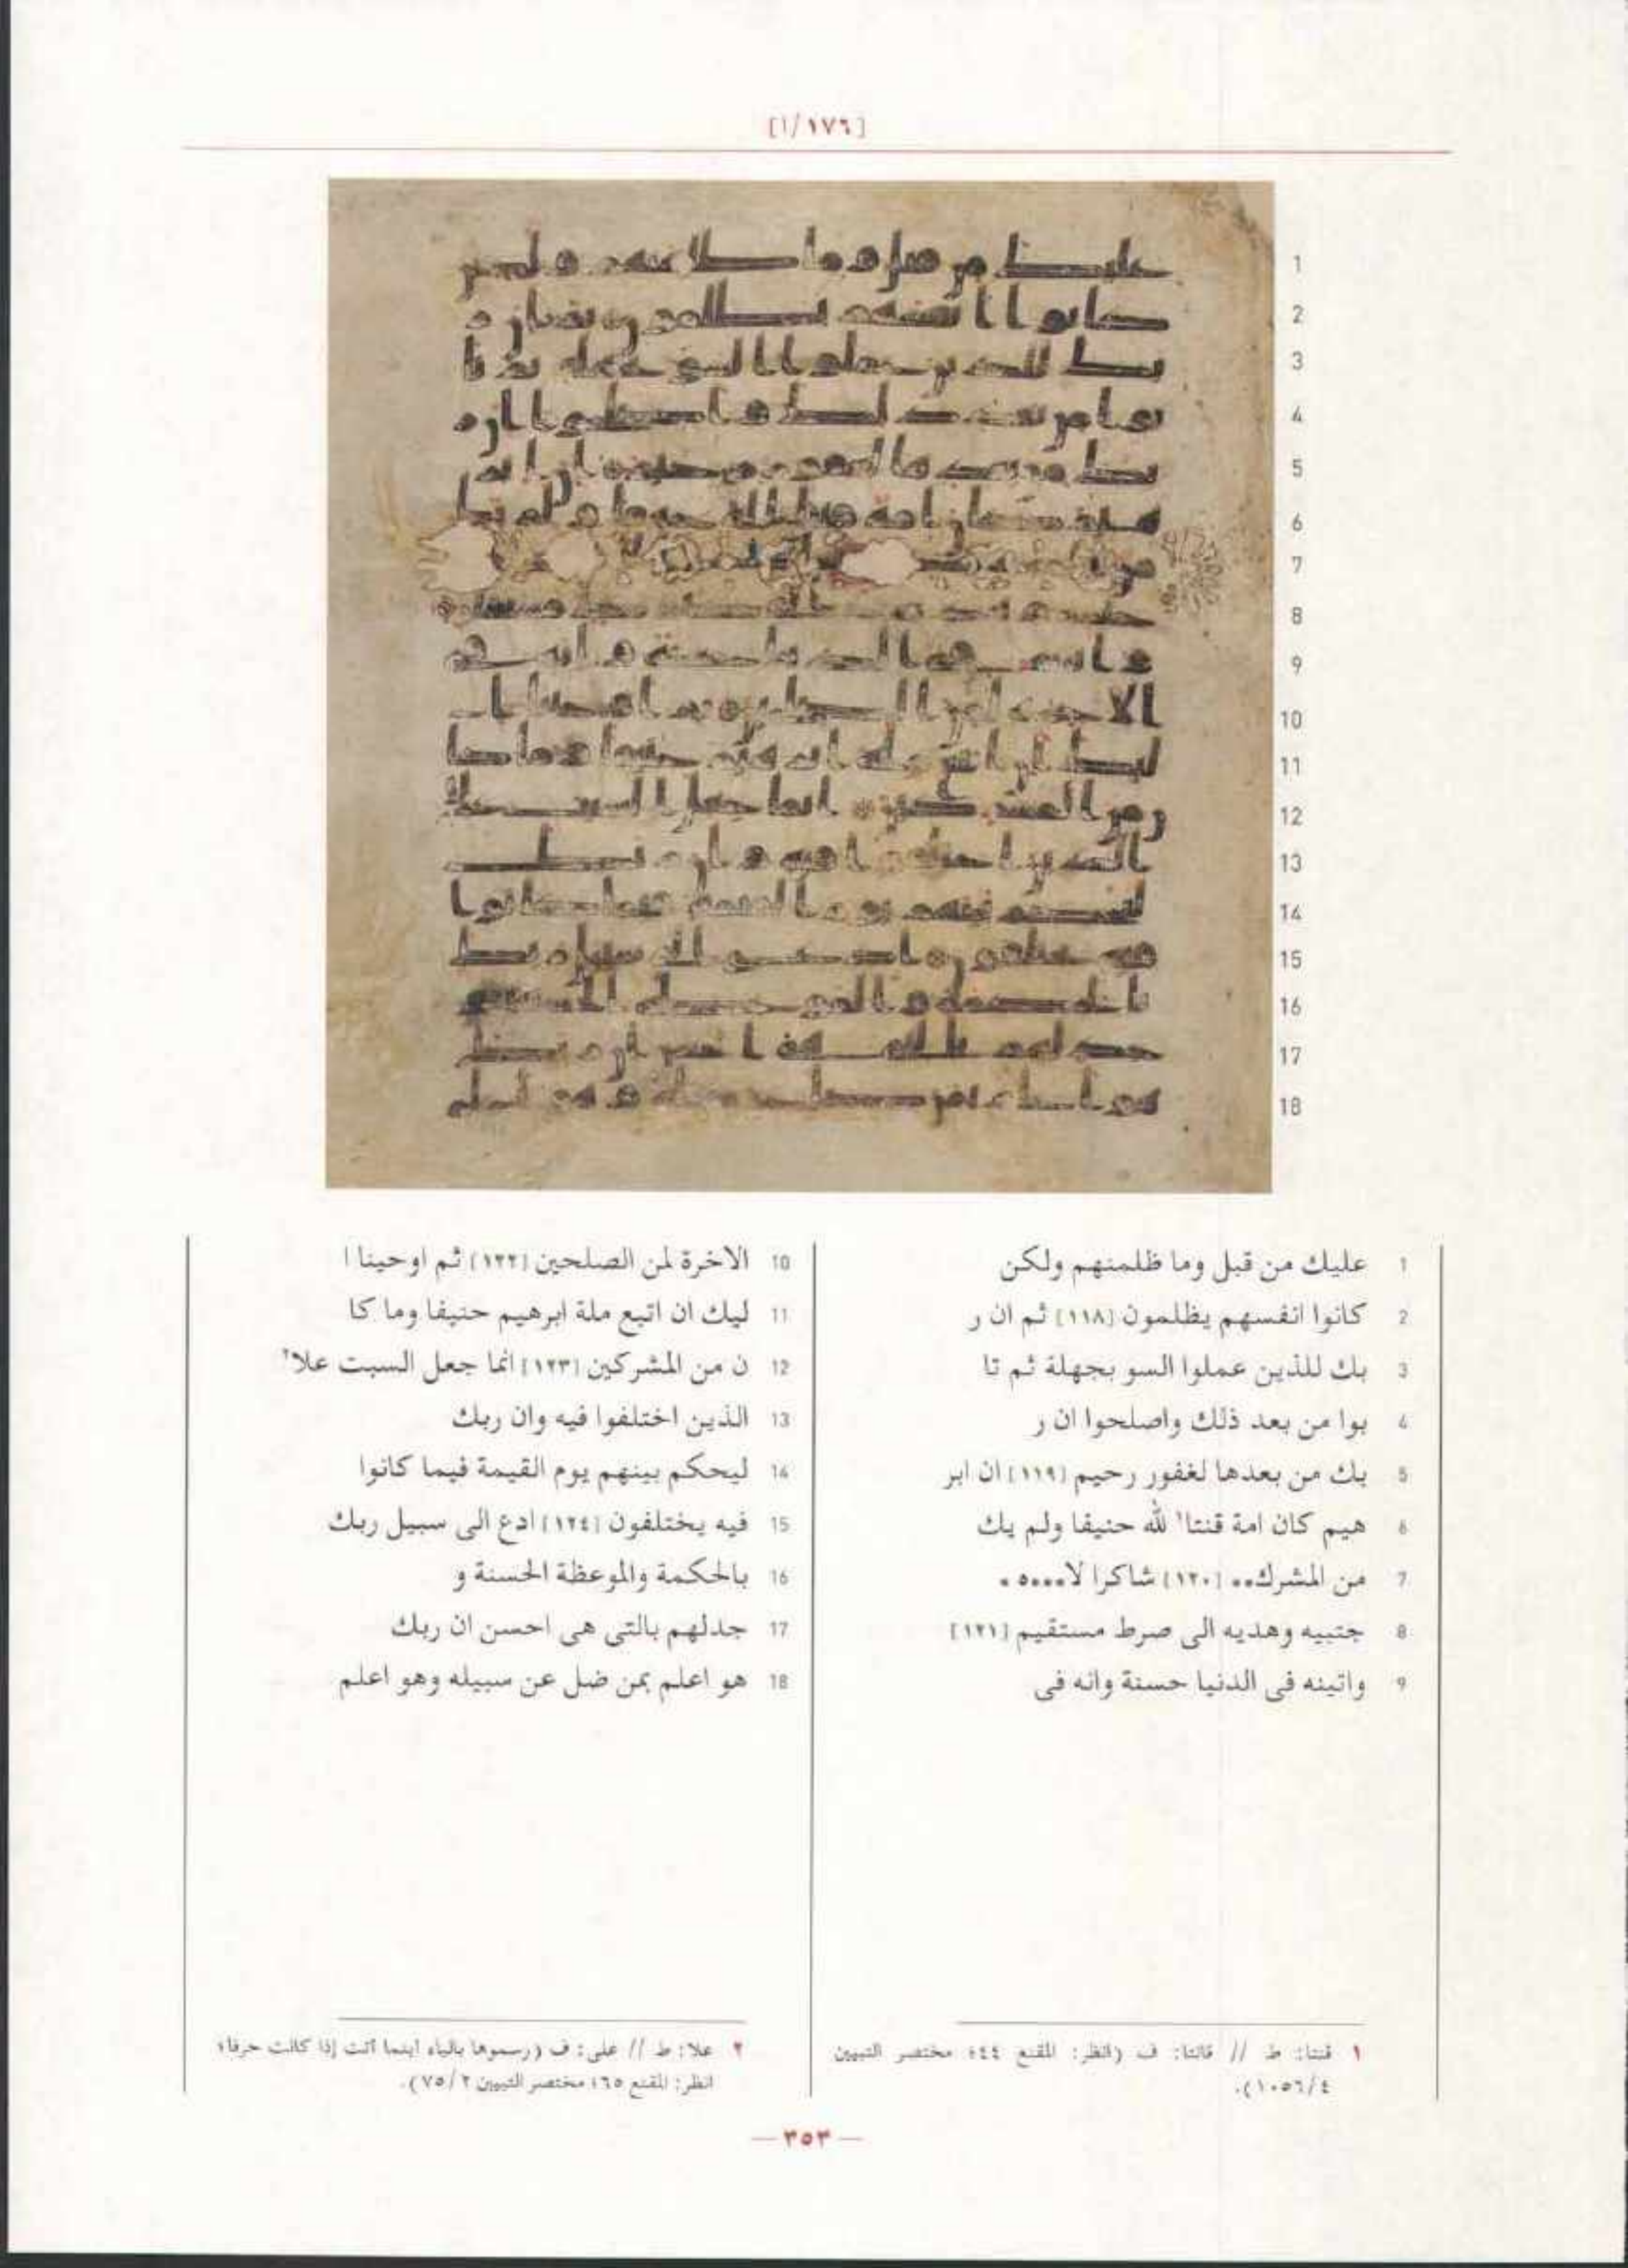 [١٧٦/ا]
1
2
3
4
5
6
7
8
9
10
11
12
13
14
15
16
17
18
1 عليك من قبل وما ظلمنهم ولكن
2 كانوا انفسهم يظلمون [١١٨] ثم ان ر
3 بك للذين عملوا السو بجهلة ثم تا
4 بوا من بعد ذلك واصلحوا ان ر
5 بك من بعدها لغفور رحيم [١١٩] ان ابر
6 هيم كان امة قنتا١ لله حنيفا ولم يك
7 من المشرك●● [١٢٠] شاكرا لا●●●●٥ ●
8 جتبيه وهديه الى صرط مستقيم [١٢١]
9 واتينه فى الدنيا حسنة وانه فى
10 الاخرة لمن الصلحين [١٢٢] ثم اوحينا ا
11 ليك ان اتبع ملة ابرهيم حنيفا وما كا
12 ن من المشركين [١٢٣] انما جعل السبت علا٢
13 الذين اختلفوا فيه وان ربك
14 ليحكم بينهم يوم القيمة فيما كانوا
15 فيه يختلفون [١٢٤] ادع الى سبيل ربك
16 بالحكمة والموعظة الحسنة و
17 جدلهم بالتى هى احسن ان ربك
18 هو اعلم بمن ضل عن سبيله وهو اعلم
١ قنتا: ط // قانتا: ف (انظر: المقنع ٤٤؛ مختصر التبيين
٤/١٠٥٦).
٢ علا: ط // على: ف (رسموها بالياء اينما أتت إذا كانت حرفا؛
انظر: المقنع ٦٥؛ مختصر التبيين ٢/٧٥).
— ٣٥٣ —